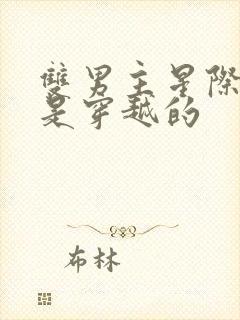 雙男主星際
是穿越的
布林